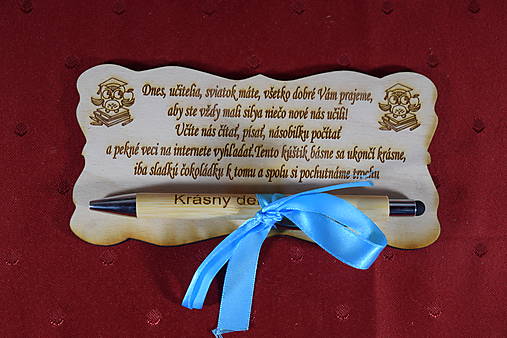 Dnes, učitelia, sviatok máte, všetko dobré Vám prajeme,
aby ste vždy mali silya niečo nové nás učili!
Učíte nás čítať, písať, násobilku počítať
a pekné veci na internete vyhľadať.Tento kúštik básne sa ukončí krásne,
iba sladkú čokoládku k tomu a spolu si pochutnáme trochu
Krásny de